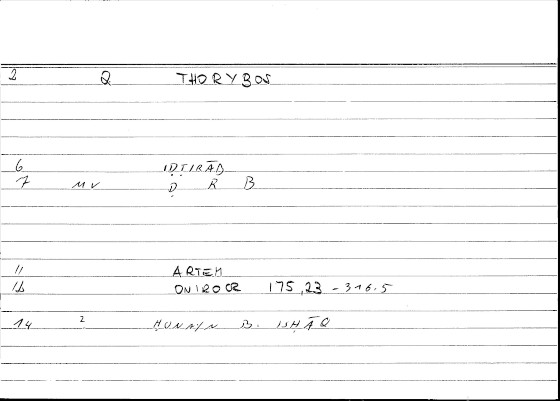 2 Q THORYBOS
6 IḌṬIRĀB
7 MV Ḍ R B
11 ARTEM
12 ONIROCR 175,23 - 316.5
14 2 ḤUNAYN B. ISḤĀQ